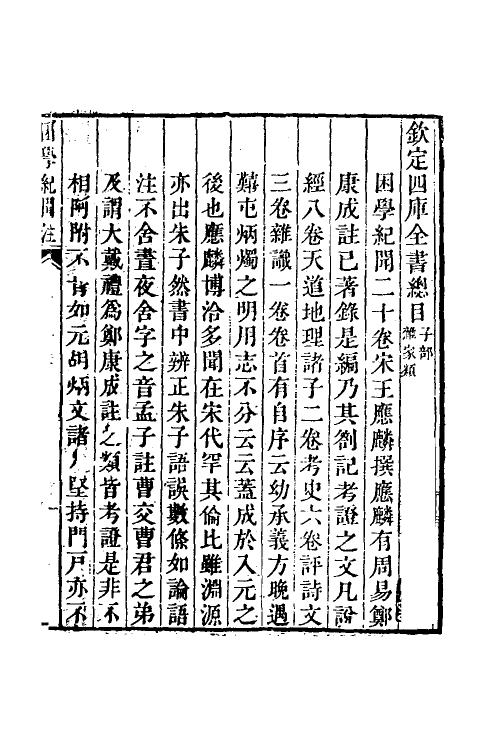 欽定四庫全書總目子部雜家類
困學紀聞二十卷宋王應麟撰應麟有周易鄭
康成註已著錄是編乃其劄記考證之文凡說
經八卷天道地理諸子二卷考史六卷評詩文
三卷雜識一卷卷首有自序云幼承義方晚遇
艱屯炳燭之明用志不分云云蓋成於入元之
後也應麟博洽多聞在宋代罕其倫比雖淵源
亦出朱子然書中辨正朱子語誤數條如論語
注不舍晝夜舍字之音孟子註曹交曹君之弟
及謂大戴禮為鄭康成註之類皆考證是非不
相阿附不肯如元胡炳文諸人堅持門戶亦不
困學紀聞注